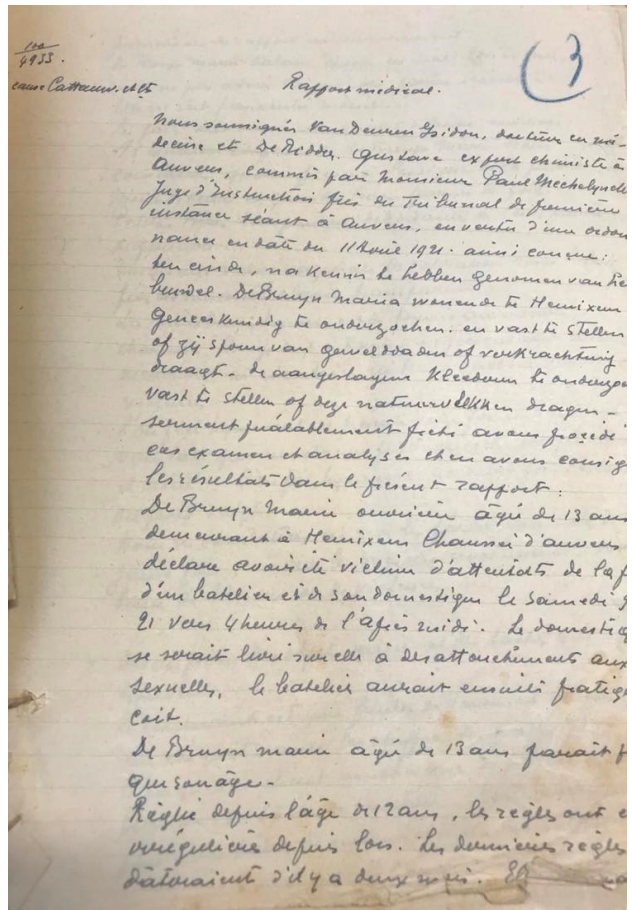 100
4933.
cause Cattauw. et cts
3
Rapport médical.
Nous soussignés Van Deuren Isidoor, docteur en mé-
decine et De Ridder Gustave expert chimiste à
Anvers, commis par Monsieur Paul Mechelynck
Juge d'Instruction près du Tribunal de première
instance séant à Anvers, en vertu d'une ordon
nance en date du 11 Avril 1921. ainsi conçue:
ten einde, na kennis te hebben genomen van he
bundel. De Bruyn Maria wonende te Hemixem
geneeskundig te onderzoeken. en vast te stellen
of zij sporen van gewelddaden of verkrachting
draagt. de aangeslagen kleederen te onderzoe
vast te stellen of deze natuurvlekken dragen -
serment préalablement prêté avons procédé
ces examen et analyses et en avons consig
les résultats dans le présent rapport:
De Bruyn Marie ouvrière âgée de 13 ans
demeurant à Hemixem Chaussée d'anvers
déclare avoir été victime d'attentats de la p
d'un batelier et de son domestique le Samedi 9
21 vers 4 heures de l'après midi. Le domestiq
se serait livré sur elle à des attouchements aux
sexuelles, le batelier aurait ensuite pratiq
coit.
De Bruyn marie âgée de 13 ans parait p
que son âge -
Réglée depuis l'âge de 12 ans, les règles ont e
irrégulières depuis lors. Les dernières règles
dateraient d'il y a deux mois.